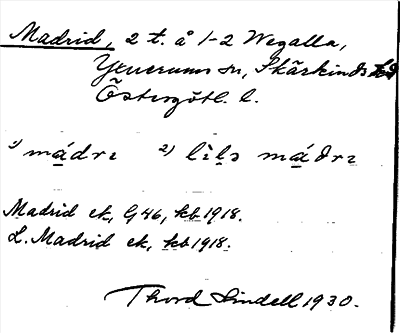 Madrid, 2 t. å 1-2 Wegalla,
Yxnerums sn, Skärkinds hd
Östergötl. l.
1) mádrɪ 2) lìlə máðrɪ
Madrid ek, G46, kb 1918.
L. Madrid ek, kb 1918.
Thord Lindell 1930.